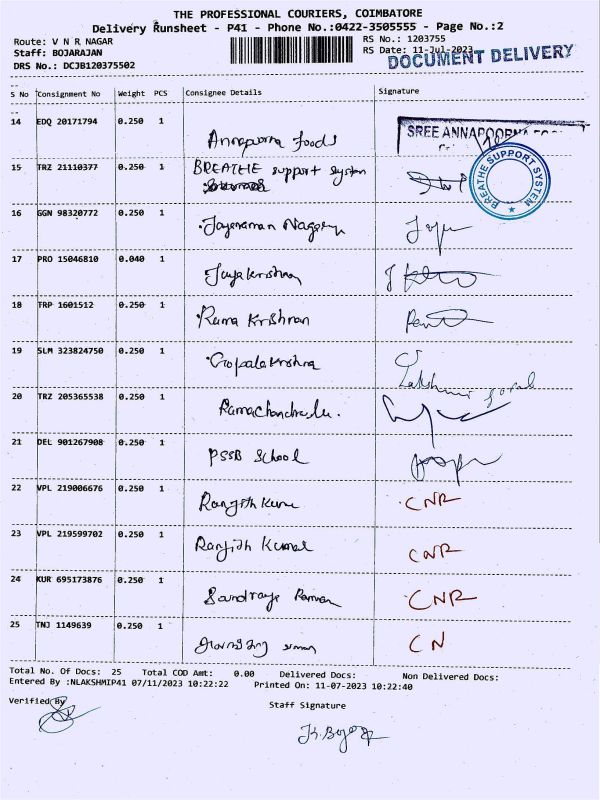 THE PROFESSIONAL COURIERS, COIMBATORE
Delivery Runsheet - P41 - Phone No.:0422-3505555 - Page No.:2
Route: V N R NAGAR RS No.: 1203755
Staff: BOJARAJAN RS Date: 11-Jul-2023
DOCUMENT DELIVERY
DRS No.: DCJB120375502
S No Consignment No Weight PCS Consignee Details Signature
14 EDQ 20171794 0.250 1
Annapurna foods
SREE ANNAPOORNA
15 TRZ 21110377 0.250 1 BREATHE support system
BREATHE SUPPORT SYSTEM
16 GGN 98320772 0.250 1
Jayaraman
17 PRO 15046810 0.040 1
Jayakrishna
18 TRP 1601512 0.250 1
Rama Krishnan
19 SLM 323824750 0.250 1
Gopalakrishna
Lakshmi gopal
20 TRZ 205365538 0.250 1
21 DEL 901267908 0.250 1
PSSB School
22 VPL 219006676 0.250 1
Ranjith CNR
23 VPL 219599702 0.250 1
Ranjith Kumar CNR
24 KUR 695173876 0.250 1
CNR
25 TNJ 1149639 0.250 1
CN
Total No. Of Docs: 25 Total COD Amt: 0.00 Delivered Docs: Non Delivered Docs:
Entered By :NLAKSHMIP41 07/11/2023 10:22:22 Printed On: 11-07-2023 10:22:40
Verified By
Staff Signature